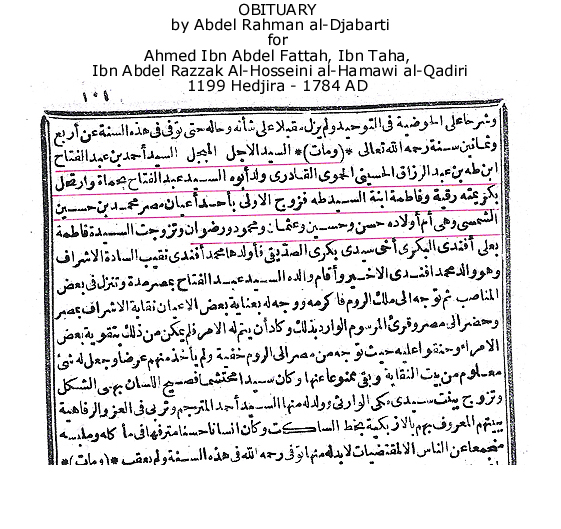 OBITUARY
by Abdel Rahman al-Djabarti
for
Ahmed Ibn Abdel Fattah, Ibn Taha,
Ibn Abdel Razzak Al-Hosseini al-Hamawi al-Qadiri
1199 Hedjira - 1784 AD
١٠١
وشرحا على الحوضية فى التوحيد ولم يزل مقبلا على شأنه وحاله حتى توفى فى هذه السنة عن أربع
وثمانين سنة رحمه الله تعالى *(ومات)* السيد الاجل المبجل السيد أحمد بن عبد الفتاح
ابن طه بن عبد الرزاق الحسينى الحموى القادرى ولد أبوه السيد عبد الفتاح بحماة وارتحل
بكريمته رقية وفاطمة ابنة السيد طه فزوج الاولى بأحد أعيان مصر محمد بن حسين
الشمسى وهى أم أولاده حسن وحسين وعثمان ومحمود ورضوان وتزوجت السيدة فاطمة
بعلى أفندى البكرى أخى سيدى بكرى الصديق فأولدها محمد أفندى نقيب السادة الاشراف
وهو والد محمد افندى الاخير وأقام والده السيد عبد الفتاح بمصر مدة وتنزل فى بعض
المناصب ثم توجه الى ملك الروم فاكرمه ووجه له بعناية بعض الاعيان نقابة الاشراف بمصر
وحضر الى مصر وقرئ المرسوم الوارد بذلك وكاد أن يتم له الامر فلم يمكن من ذلك بتقوية بعض
الامراء وحنقوا عليه حيث توجه من مصر الى الروم خفية ولم يأخذ منهم عرضا وجعل له شئ
معلوم من بيت النقابة وبقى ممنوعا عنها وكان سيدا محتشما فصيح اللسان بهى الشكل
وتزوج بنت سيدى مكى الوارثى وولد له منها السيد أحمد المترجم وتربى فى العز والرفاهية
ببيتهم المعروف بهم بالازبكية بخط الساكت وكان انسانا حسنا مترفها فى مأكله وملبسه
منجمعا عن الناس الا لمقتضيات لابد له منها توفى رحمه الله فى هذه السنة ولم يعقب *(ومات)*